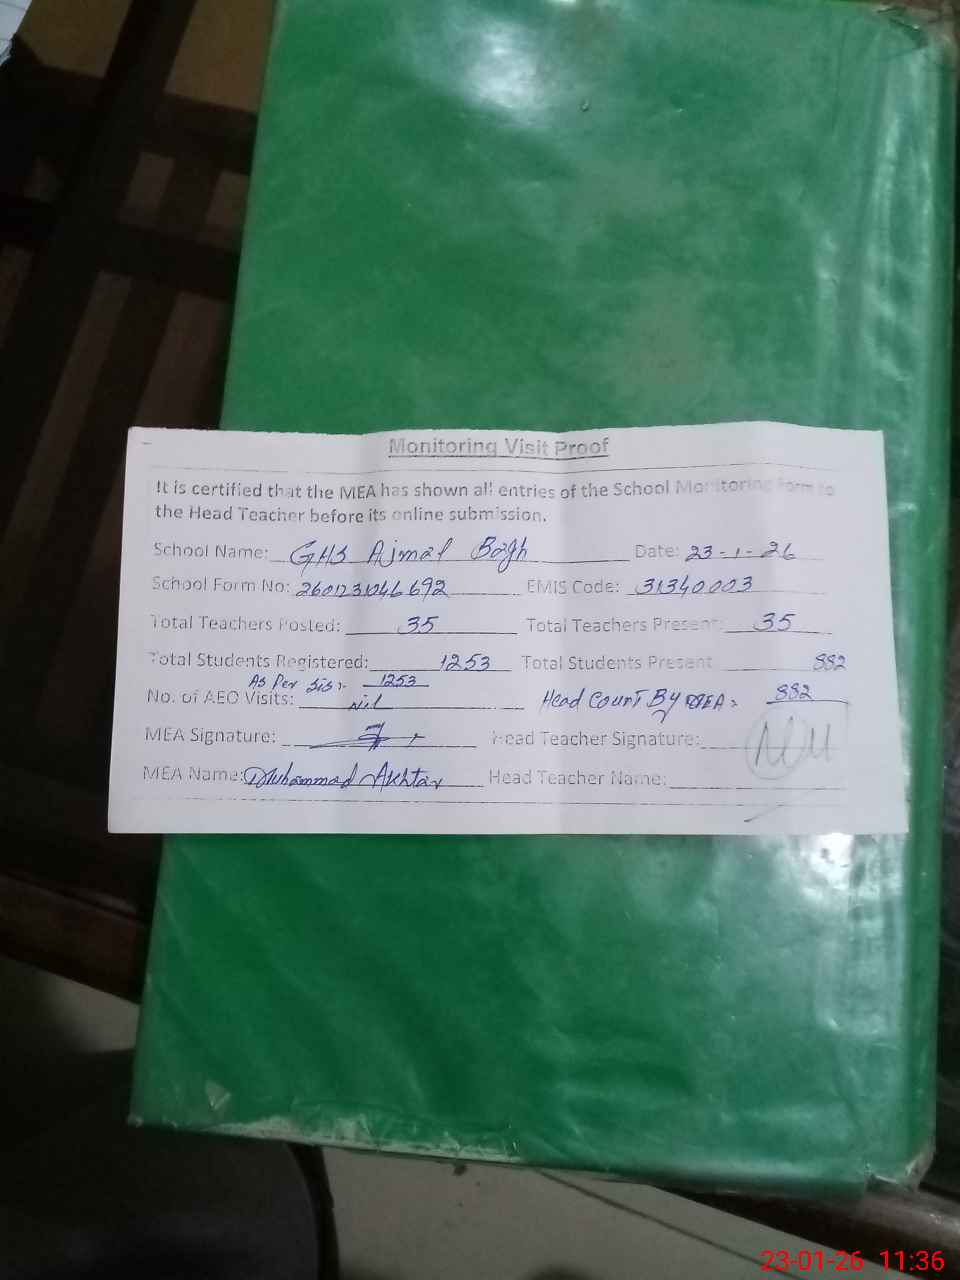 Monitoring Visit Proof
It is certified that the MEA has shown all entries of the School Monitoring Form to
the Head Teacher before its online submission.
School Name: GHS Ajmal Bagh Date: 23-1-26
School Form No: 2601231046692 EMIS Code: 31340003
Total Teachers Posted: 35 Total Teachers Present: 35
Total Students Registered: 1253 Total Students Present 882
As Per Sis:- 1253
No. of AEO Visits: Nil Head Count By MEA = 882
MEA Signature: Head Teacher Signature:
MEA Name: Muhammad Akhtar Head Teacher Name:
23-01-26 11:36